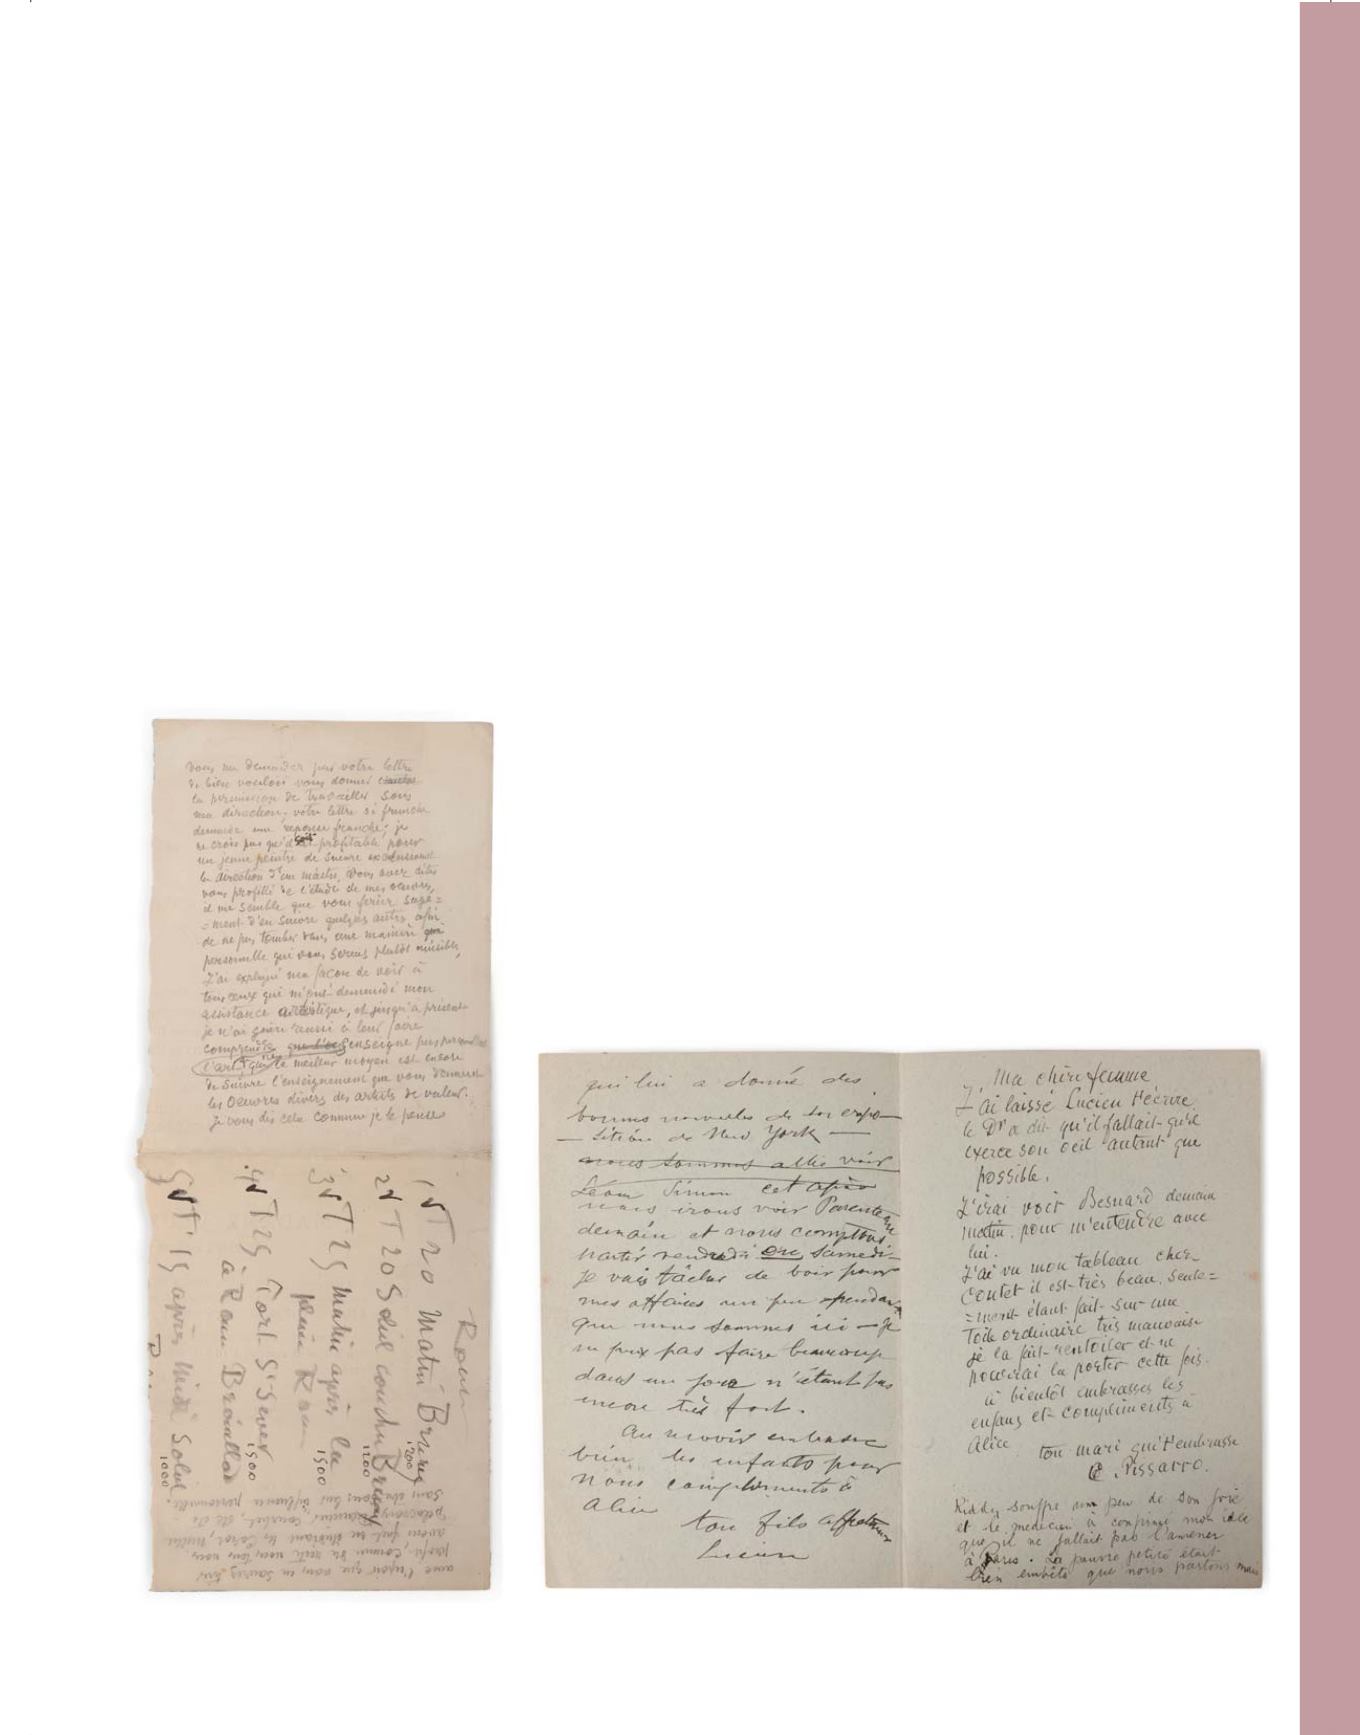 vous me demandez par votre lettre
de bien vouloir vous donner
la permission de travailler sous
ma direction, votre lettre si franche
demande une reponse franche; je
ne crois pas qu'il soit profitable pour
un jeune peintre de suivre
la direction d'un maître, vous avez dites
vous profité de l'étude de mes oeuvres,
il me semble que vous feriez sage=
=ment d'en suivre quelques autres afin
de ne pas tomber dans une manière
personnelle qui vous serais plutôt nuisible,
J'ai expliqué ma façon de voir à
tous ceux qui m'ont demandé mon
assistance artistique, et jusqu'à présent
je n'ai guère reussi à leur faire
comprendre que l'on enseigne pas
l'art que le meilleur moyen est encore
de suivre l'enseignement que vous donnent
les Oeuvres divers des artistes de valeur.
je vous dis cela comme je le pense
Rouen
1 T 20 Matin Brume
1200
2 T 20 Soleil couchant
1200
3 T 25 Matin après la
pluie Rouen
1500
4 T 25 Fort St Sever
à Rouen Brouillard
1500
5 T 15 après midi Soleil
1000
qui lui a donné des
bonnes nouvelles de son expo—
—sition de New York —
nous sommes allés voir
Léon Simon cet après
nous irons voir
demain et nous comptons
partir vendredi ou samedi—
je vais tâcher de voir pour
mes affaires un peu pendant
que nous sommes ici — je
ne peux pas faire beaucoup
dans un jour n'étant pas
encore très fort.
Au revoir embrasse
bien les enfants pour
nous compliments à
Alice
ton fils affectueux
Lucien
Ma chère femme
J'ai laissé Lucien t'écrire
le Dr a dit qu'il fallait qu'il
exerce son oeil autant que
possible.
J'irai voir Besnard demain
matin pour m'entendre avec
lui.
J'ai vu mon tableau chez
Contet il est très beau, seule=
=ment étant fait sur une
toile ordinaire très mauvaise
je la fait rentoiler et ne
pourrai la porter cette fois.
à bientôt embrasses les
enfans et compliments à
Alice. ton mari qui t'embrasse
C. Pissarro.
Kiddy souffre un peu de son foie
et le médecin a comprimé mon idée
que il ne fallait pas l'amener
à Paris. La pauvre petite était
bien embêté que nous partons mais